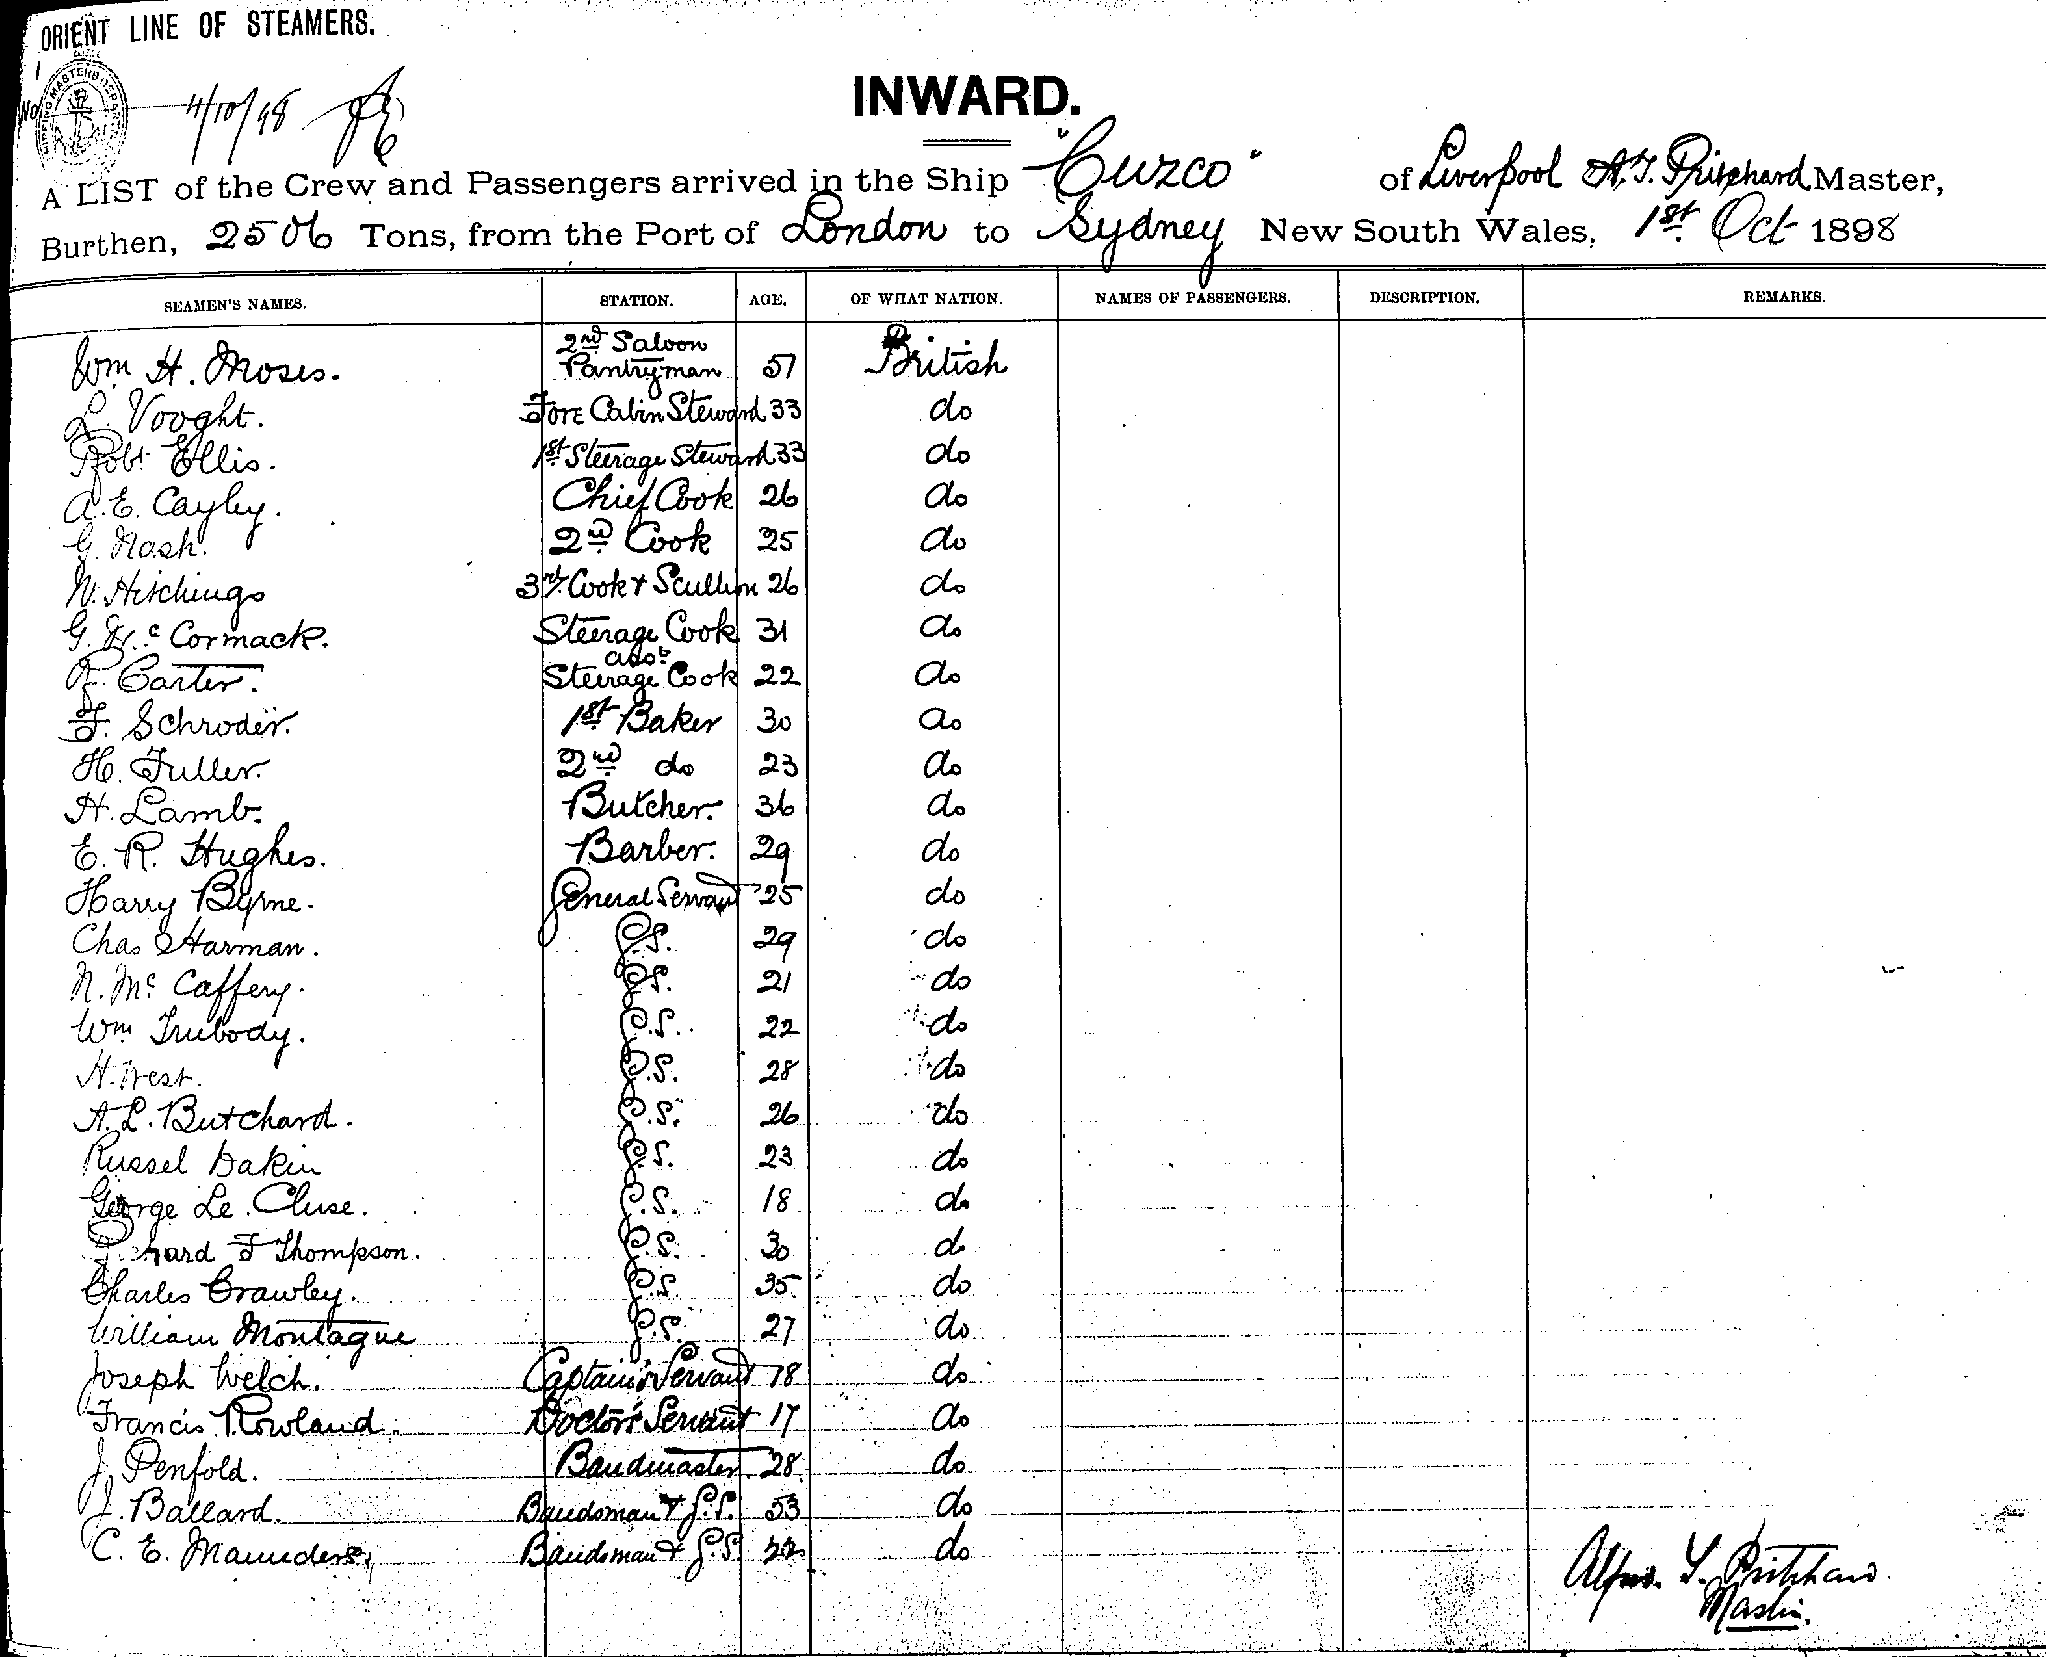 ORIENT LINE OF STEAMERS.
No
4/10/98
INWARD.
A LIST of the Crew and Passengers arrived in the Ship "Cuzco" of Liverpool A. T. Pritchard Master,
Burthen, 2506 Tons, from the Port of London to Sydney New South Wales, 1st Oct 1898
SEAMEN'S NAMES. STATION. AGE. OF WHAT NATION. NAMES OF PASSENGERS. DESCRIPTION. REMARKS.
Wm H. Moses. 2nd Saloon Pantryman 51 British
L. Vooght. Fore Cabin Steward 33 do
Robt Ellis. 1st Steerage Steward 33 do
A. E. Cayley. Chief Cook 26 do
G. Nash. 2nd Cook 25 do
W. Hitchings 3rd Cook & Scullion 26 do
G. Mc Cormack. Steerage Cook 31 do
Carter. asst Steerage Cook 22 do
F. Schroder. 1st Baker 30 do
H. Fuller. 2nd do 23 do
H. Lamb. Butcher. 36 do
E. R. Hughes. Barber. 29 do
Harry Byrne. General Servant 25 do
Chas Harman. G.S. 29 do
N. Mc Caffery. G.S. 21 do
Wm Trubody. G.S. 22 do
H. West. G.S. 28 do
A. L. Butchard. G.S. 26 do
Russel Dakin G.S. 23 do
George Le Cluse. G.S. 18 do
Richard F Thompson. G.S. 30 do
Charles Crawley. G.S. 35 do
William Montague G.S. 27 do
Joseph Welch. Captain's Servant 18 do
Francis Rowland. Doctor's Servant 17 do
J. Penfold. Bandmaster 28 do
J. Ballard. Bandsman & G.S. 53 do
C. E. Maunders, Bandsman & G.S. 22 do
Alfred T. Pritchard
Master.